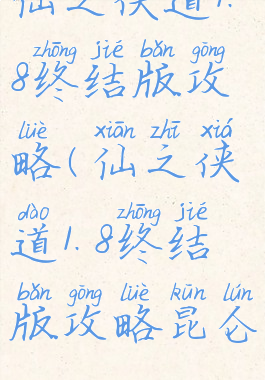 仙之侠道1.
zhōng jié bǎn gōng
8终结版攻
lüè xiān zhī xiá
略(仙之侠
dào zhōng jié
道1.8终结
bǎn gōng lüè kūn lún
版攻略昆仑